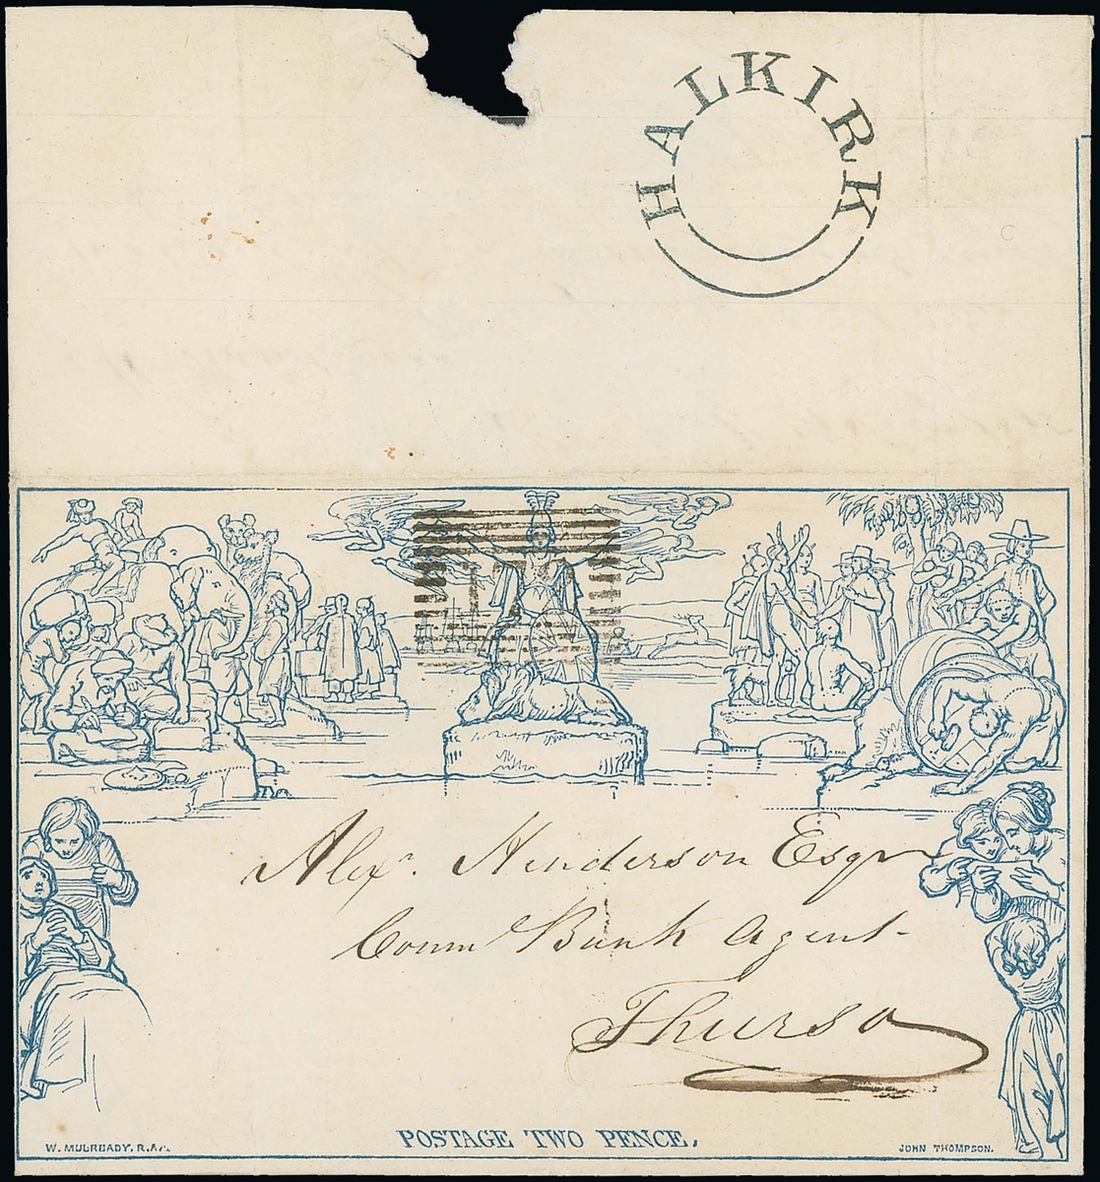 HALKIRK
Alexr. Henderson Esqr
Comm Bank Agent
Thurso
POSTAGE TWO PENCE.
W. MULREADY, R.A.
JOHN THOMPSON.